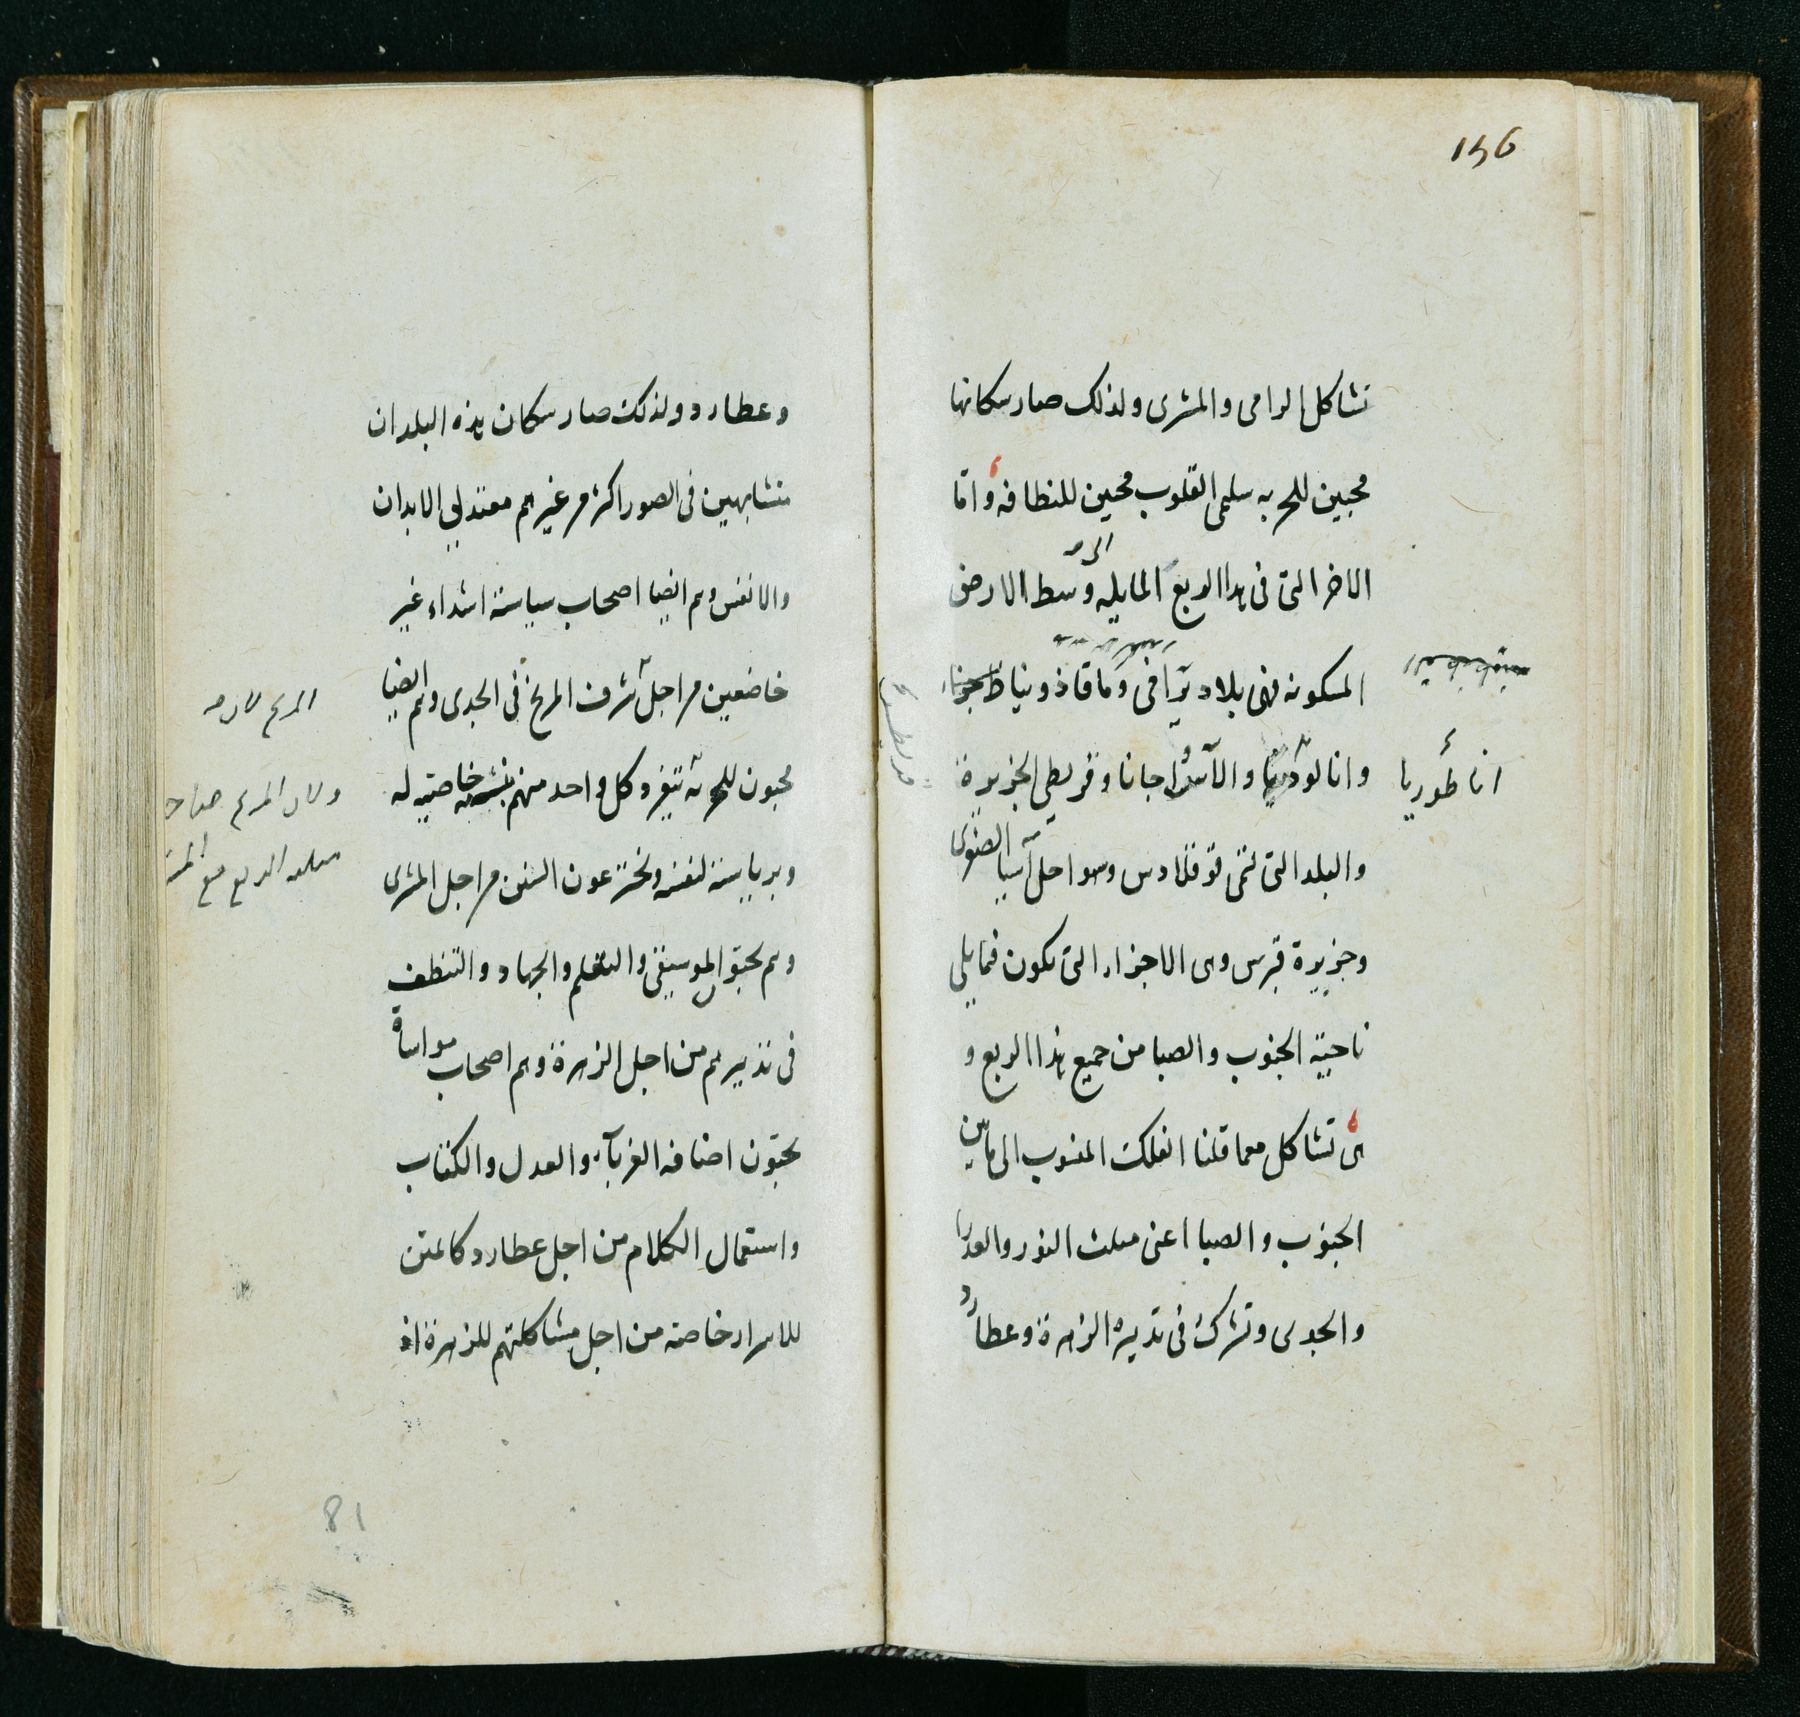 156
تشاكل الرامى والمشرى ولذلك صار سكانها
محبين للحرىه سليمى القلوب محبين للنطافه واما
الى
الاخر التى فى هذا الربع المايله وسط الارض
المسكونه فهى بلاد تراقى وماقاذونياط
وانا لو والا جانا وقريطى الجزيرة
انا طوريا
والبلد التى تسمى قوقلادس وسواحل اسيا الصغرى
وجزيرة قبرس وهى الاجزاء التى تكون فيما يلى
ناحية الجنوب والصبا من جميع هذا الربع و
هى تشاكل مما قلنا الفلك المنسوب الى ما بين
الجنوب والصبا اعنى مثلث الثور والعذرا
والجدى وتشرك فى تدبيره الزهرة وعطارد
وعطارد ولذلك صار سكان هذه البلدان
متشابهين فى الصور اكثر من غيرهم معتدلى الابدان
والانفس وهم ايضا اصحاب سياسة اشداء غير
خاضعين من اجل شرف المريخ فى الجدى وهم ايضا
محبون للحرىه يتفرد كل واحد منهم خاصية له
وبرياسة لنفسه ويخترعون السنن من اجل المشرى
وهم يحبون الموسيقى والتعلم والجهاد والتنطف
فى تدبيرهم من اجل الزهرة وهم اصحاب مواساة
يحبون اضافه الغرباء والعدل والكتاب
واستعمال الكلام من اجل عطارد كاتمين
للاسرار خاصة من اجل مشاكلتهم للزهرة اذ
81